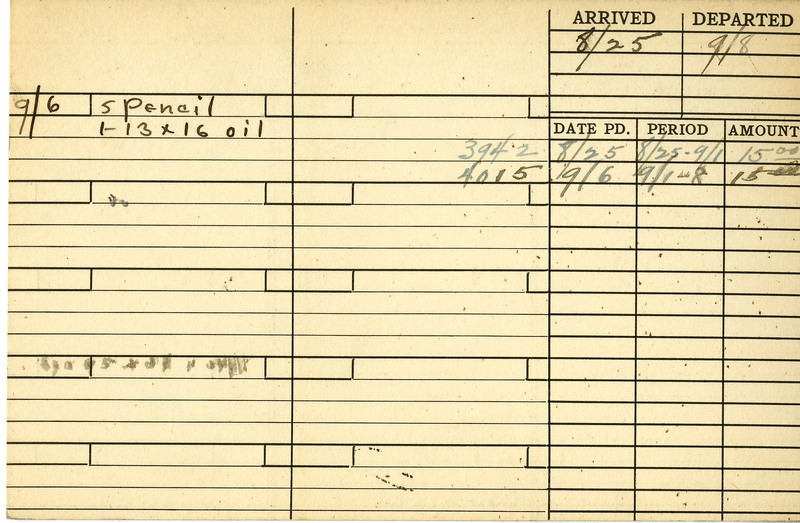 ARRIVED DEPARTED
8/25 9/8
9/6 5 Pencil
1-13x16 oil
DATE PD. PERIOD AMOUNT
3942 8/25 8/25-9/1 15 00
4015 9/6 9/1-8 15 00